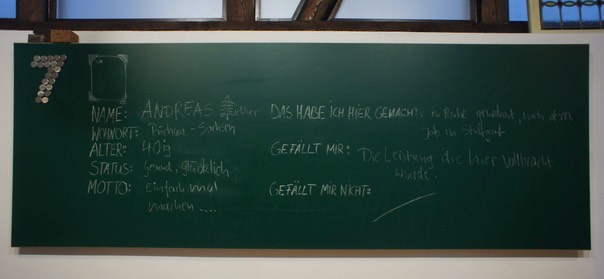 7
NAME: ANDREAS
WOHNORT: Sachsen
ALTER: 40ig
STATUS: Gesund, glücklich
MOTTO: einfach mal
machen ....
DAS HABE ICH HIER GEMACHT: in Ruhe gewohnt, nach dem
Job in Stuttgart
GEFÄLLT MIR: Die Leistung die hier vollbracht
wurde.
GEFÄLLT MIR NICHT: